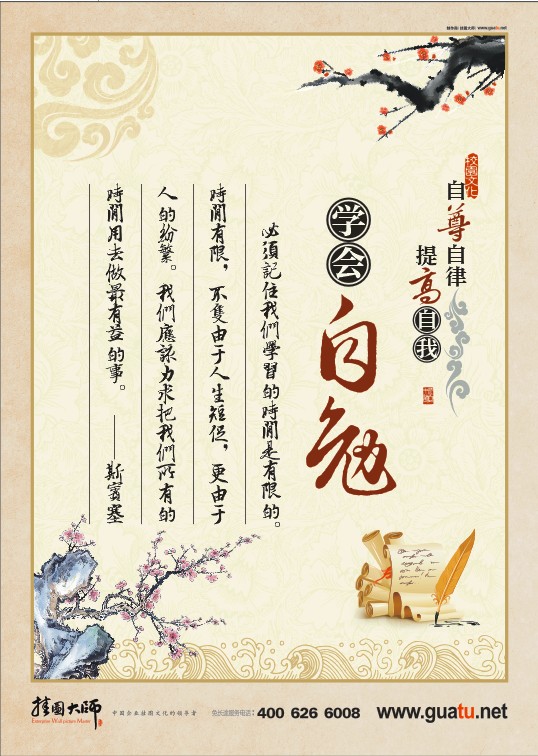 www.guatu.net
校園文化
自尊自律
提高自我
学会
自勉
必須記住我們學習的時間是有限的。
時間有限，不隻由于人生短促，更由于
人的紛繁。我們應該力求把我們所有的
時間用去做最有益的事。 ——斯賓塞
挂圖大师
Enterprise Wall pictures Master
中国企业挂图文化的领导者
免长途服务电话：400 626 6008
www.guatu.net